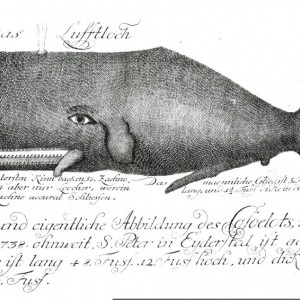 das Lufftloch
dersten Kinnbacken 50. Zaehne,
n aber nur Loecher, worein
aehne accurat Schliesen.
Das maennliche Glied ist S
lang, und 1½ Fusf
und eigentliche Abbildung des Casselots,
1738. ohnweit, S. Peter in Eydersted ist ge
ist lang 48. Fusf. 12. Fusf hoch, und die
Fusf.